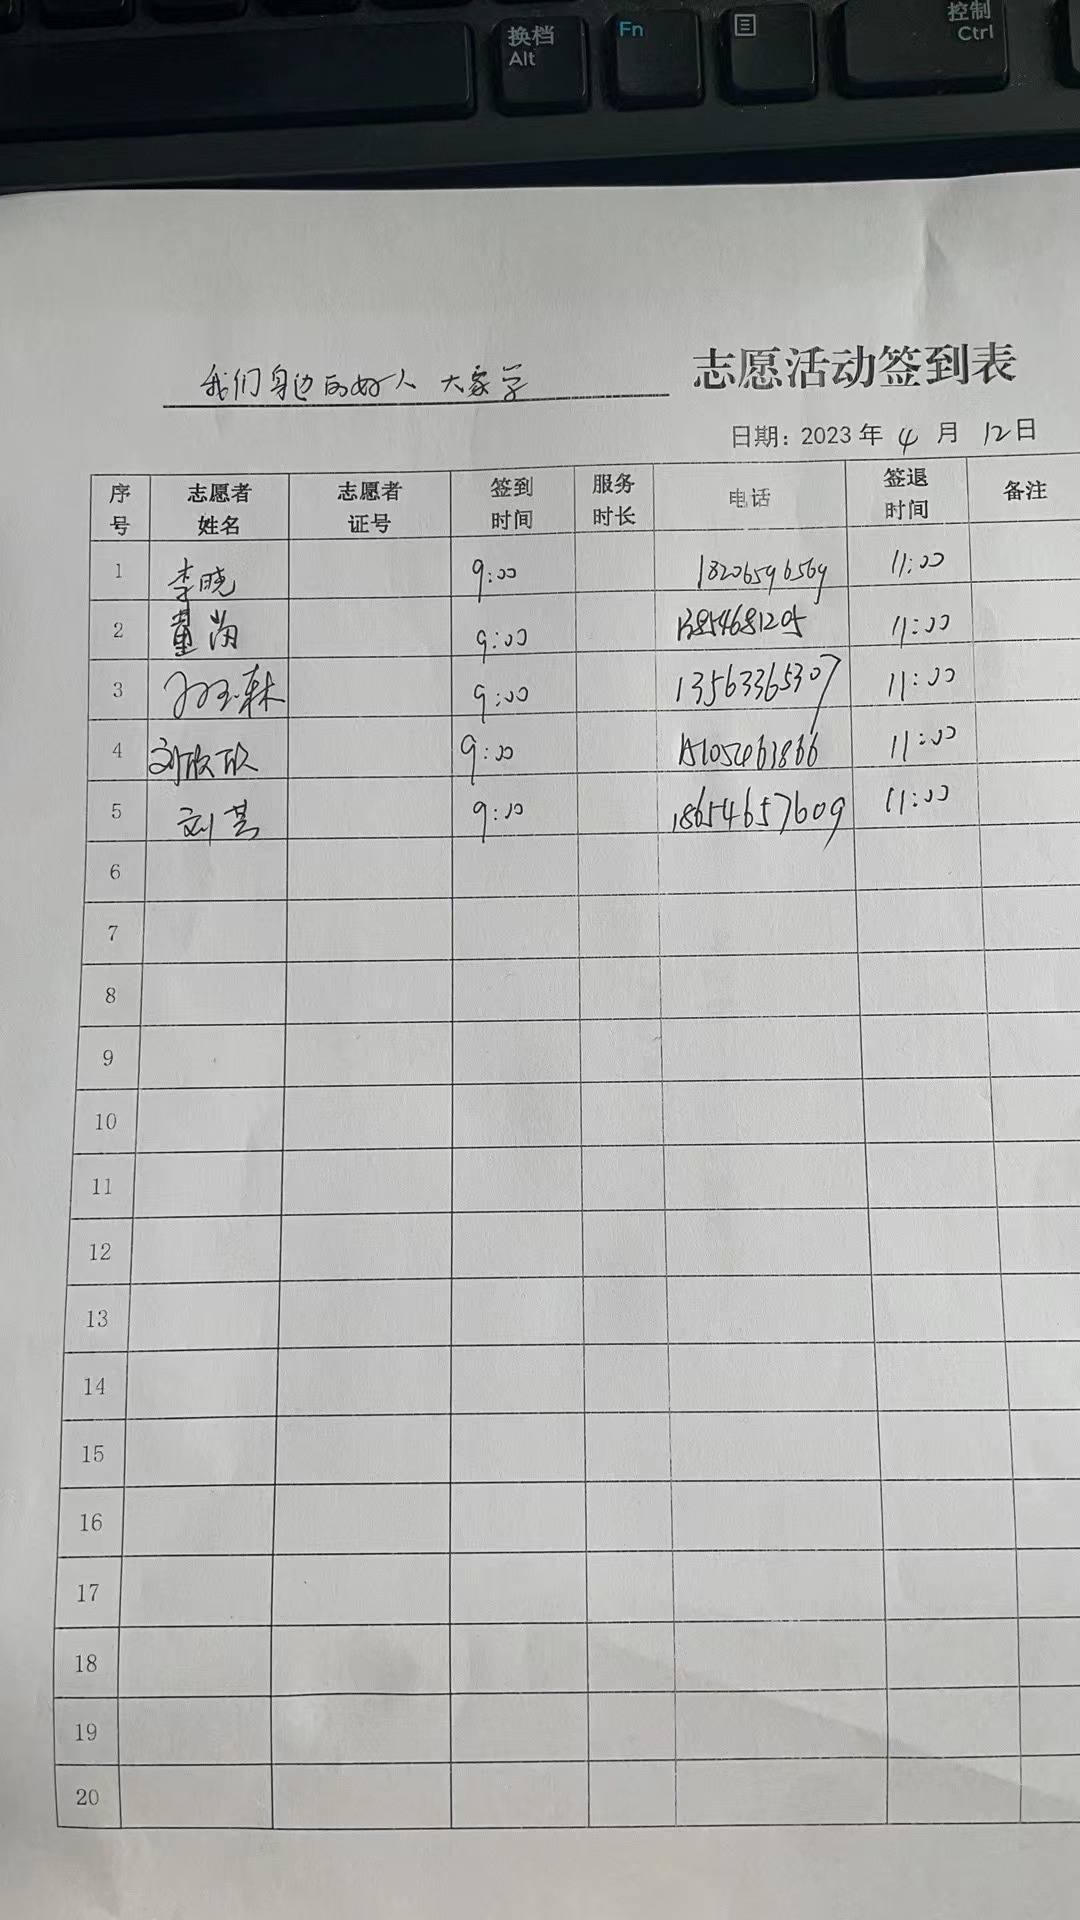 换档
Alt
Fn
控制
Ctrl
我们身边的好人 大家学 志愿活动签到表
日期: 2023 年 4 月 12日
序号 志愿者姓名 志愿者证号 签到时间 服务时长 电话 签退时间 备注
1 李晓 9:00 18206596569 11:00
2 董 9:00 11:00
3 9:00 13563365307 11:00
4 刘欣欣 9:00 15105463866 11:00
5 刘芸 9:00 18654657609 11:00
6
7
8
9
10
11
12
13
14
15
16
17
18
19
20